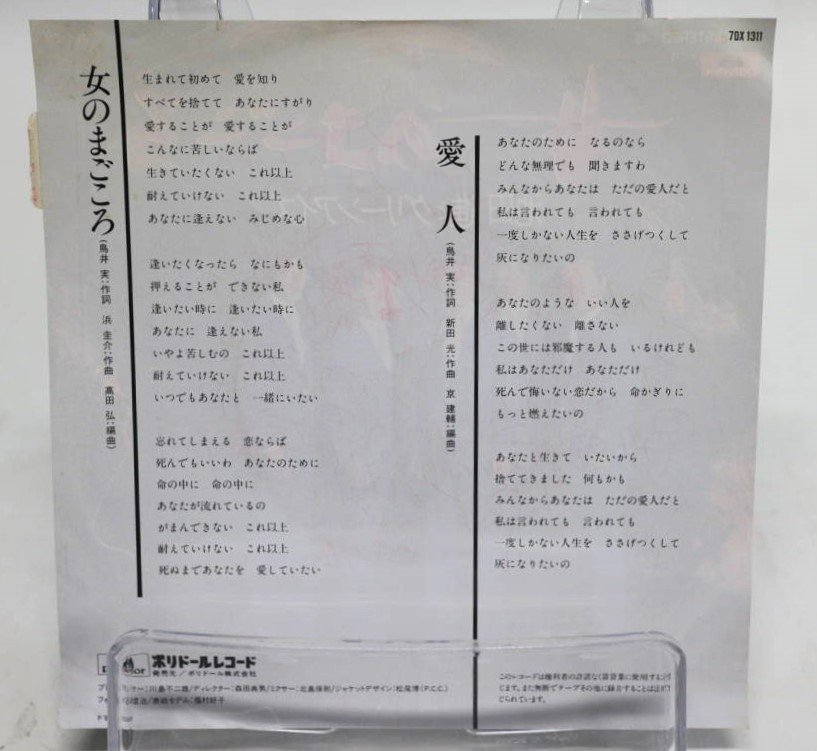 7DX 1311
女のまごころ
(鳥井 実:作詞 浜 圭介:作曲 高田 弘:編曲)
生まれて初めて 愛を知り
すべてを捨てて あなたにすがり
愛することが 愛することが
こんなに苦しいならば
生きていたくない これ以上
耐えていけない これ以上
あなたに逢えない みじめな心
逢いたくなったら なにもかも
押えることが できない私
逢いたい時に 逢いたい時に
あなたに 逢えない私
いやよ苦しむの これ以上
耐えていけない これ以上
いつでもあなたと 一緒にいたい
忘れてしまえる 恋ならば
死んでもいいわ あなたのために
命の中に 命の中に
あなたが流れているの
がまんできない これ以上
耐えていけない これ以上
死ぬまであなたを 愛していたい
愛人
(鳥井 実:作詞 新田 光:作曲 京 建輔:編曲)
あなたのために なるのなら
どんな無理でも 聞きますわ
みんなからあなたは ただの愛人だと
私は言われても 言われても
一度しかない人生を ささげつくして
灰になりたいの
あなたのような いい人を
離したくない 離さない
この世には邪魔する人も いるけれども
私はあなただけ あなただけ
死んで悔いない恋だから 命かぎりに
もっと燃えたいの
あなたと生きて いたいから
捨ててきました 何もかも
みんなからあなたは ただの愛人だと
私は言われても 言われても
一度しかない人生を ささげつくして
灰になりたいの
ポリドールレコード
発売元/ポリドール株式会社
川島不二雄/ディレクター:森田典男/ミキサー:北島保則/ジャケットデザイン:松尾博(P.C.C.)
表紙モデル:篠村好子
このレコードは権利者の許諾なく賃貸業に使用する
じます。また無断でテープその他に録音することは法
じられています。